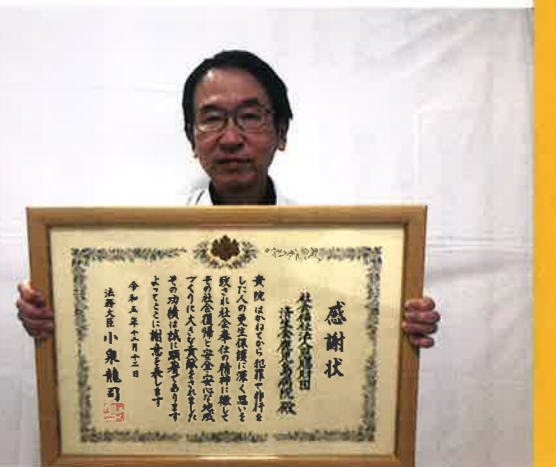 感謝状
社会福祉法人恩賜財団
済生会鹿児島病院 殿
貴院はかねてから犯罪や非行を
した人の更生保護に深く思いを
致され社会奉仕の精神に徹して
その社会復帰と安全・安心な地域
づくりに大きな貢献をされました
その功績は誠に顕著であります
よってここに謝意を表します
令和五年十二月十二日
法務大臣 小泉龍司